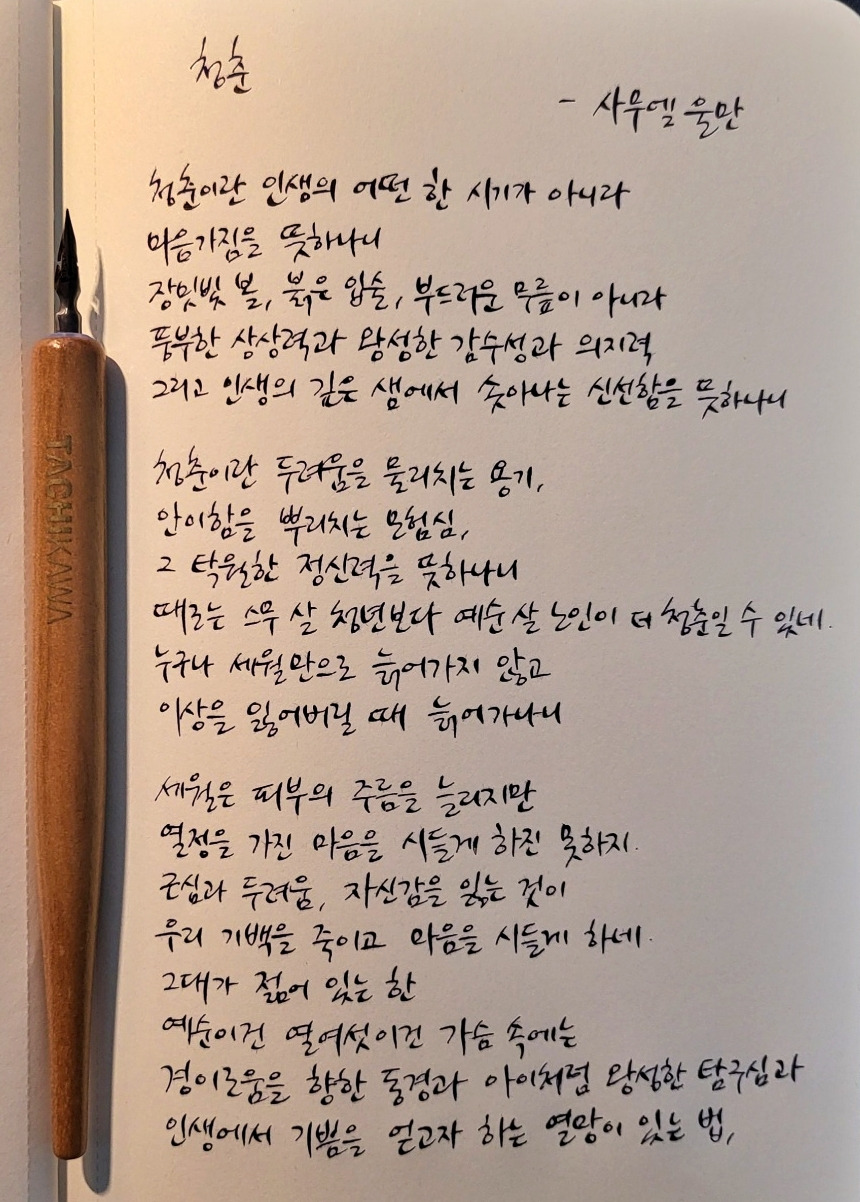 청춘
- 사무엘 울만
청춘이란 인생의 어떤 한 시기가 아니라
마음가짐을 뜻하나니
장밋빛 볼, 붉은 입술, 부드러운 무릎이 아니라
풍부한 상상력과 왕성한 감수성과 의지력
그리고 인생의 깊은 샘에서 솟아나는 신선함을 뜻하나니
청춘이란 두려움을 물리치는 용기,
안이함을 뿌리치는 모험심,
그 탁월한 정신력을 뜻하나니
때로는 스무 살 청년보다 예순 살 노인이 더 청춘일 수 있네.
누구나 세월만으로 늙어가지 않고
이상을 잃어버릴 때 늙어가나니
세월은 피부의 주름을 늘리지만
열정을 가진 마음을 시들게 하진 못하지.
근심과 두려움, 자신감을 잃는 것이
우리 기백을 죽이고 마음을 시들게 하네.
그대가 젊어 있는 한
예순이건 열여섯이건 가슴 속에는
경이로움을 향한 동경과 아이처럼 왕성한 탐구심과
인생에서 기쁨을 얻고자 하는 열망이 있는 법,
TACHIKAWA